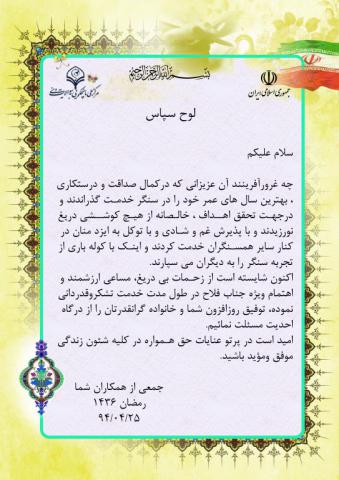 بسم الله الرحمن الرحیم
جمهوری اسلامی ایران
لوح سپاس
سلام علیکم
چه غرورآفرینند آن عزیزانی که درکمال صداقت و درستکاری
، بهترین سال های عمر خود را در سنگر خدمت گذراندند و
درجهت تحقق اهداف ، خالصانه از هیچ کوششی دریغ
نورزیدند و با پذیرش غم و شادی و با توکل به ایزد منان در
کنار سایر همسنگران خدمت کردند و اینک با کوله باری از
تجربه سنگر را به دیگران می سپارند.
اکنون شایسته است از زحمات بی دریغ، مساعی ارزشمند و
اهتمام ویژه جناب فلاح در طول مدت خدمت تشکروقدردانی
نموده، توفیق روزافزون شما و خانواده گرانقدرتان را از درگاه
احدیت مسئلت نمائیم.
امید است در پرتو عنایات حق همواره در کلیه شئون زندگی
موفق ومؤید باشید.
جمعی از همکاران شما
رمضان ۱۴۳۶
۹۴/۰۴/۲۵